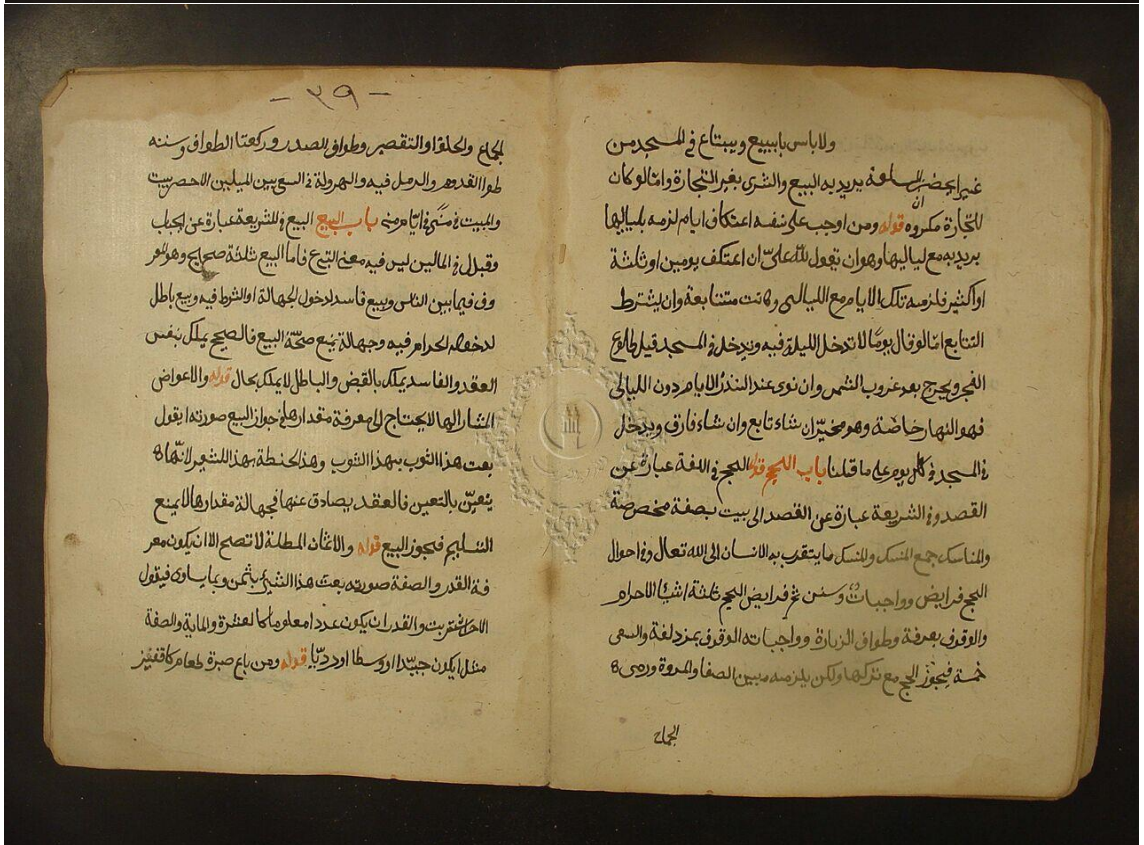 ولا باس بابيبيع ويبتاع في المسجد من
غير ان يحضر السلعة يريد به البيع والشرى بغير التجارة واما لو كان
للتجارة مكروه قوله ومن اوجب على نفسه اعتكاف ايام لزمه بلياليها
يريد به مع لياليها وهو ان يقول لله علي ان اعتكف يومين او ثلثة
او اكثر فلزمه تلك الايام مع الليالي وكانت متتابعة وان يشترط
التتابع اما لو قال يوما لا تدخل الليلة فيه ويدخل في المسجد قبل طلوع
الفجر ويخرج بعد غروب الشمس وان نوى عند النذر الايام دون الليالي
فهو النهار خاصة وهو مخير ان شاء تابع وان شاء فارق ويدخل
في المسجد في كل يوم على ما قلنا باب الحج قوله الحج في اللغة عبارة عن
القصد وفي الشريعة عبارة عن القصد الى بيت بصفة مخصوصة
والمناسك جمع المنسك والمنسك ما يتقرب به الانسان الى الله تعالى وفي احوال
الحج فرايض وواجبات وسنن ثم فرايض الحج ثلثة اشياء الاحرام
والوقوف بعرفة وطواف الزيارة وواجباته الوقوف بمزدلفة والسعى
خمسة فيجوز الحج مع تركها ولكن يلزمه مبين الصفا والمروة ورمى
الجمار
- ٣٩ -
الجمار والحلق او التقصير وطواف الصدر وركعتا الطواف وسننه
طواف القدوم والرمل فيه والهرولة في السعي بين الميلين الاخضر بيت
والمبيت في منى في ايام منى باب البيع البيع في الشريعة عبارة عن ايجاب
وقبول في المالين ليس فيه معنى التبرع فاما البيع ثلثة صحايح وهو
فيما بين الناس وبيع فاسد لدخول الجهالة او الشرط فيه وبيع باطل
لدخول الحرام فيه وجهالة تمنع صحة البيع فالصحيح يملك بنفس
العقد والفاسد يملك بالقبض والباطل لا يملك بحال قوله والاعواض
المشار الها لا يحتاج الى معرفة مقدارها في جواز البيع صورته ان يقول
بعت هذا الثوب بهذا الثوب وهذا الحنطة بهذا الشعير لانها
يتعين بالتعين فالعقد يصادق عنها فجهالة مقدارها لا يمنع
التسليم فيجوز البيع قوله والاثمان المطلقة لا تصح الا ان يكون معر
فة القدر والصفة صورته بعت هذا الشئ بثمن وبما يساوى فيقول
الاخر اشتريت والقدر ان يكون عددا معلوما كالعشرة والماية والصفة
مثل ان يكون جيدا او وسطا او رديا قوله ومن باع صبرة طعام كل قفيز